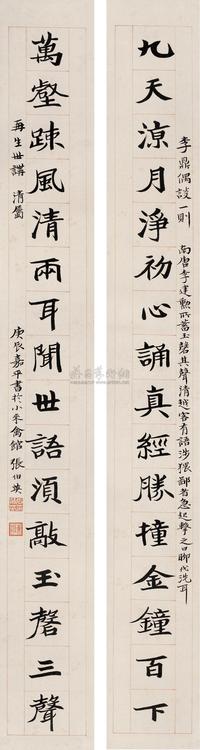 九天涼月淨初心誦真經勝撞金鐘百下
李鼎偶談一則
南唐李建勲所蓄玉磬其聲清越客有語涉猥鄙者急起擊之曰聊代洗耳
萬壑踈風清兩耳聞世語湏敲玉磬三聲
再生世講 清屬
庚辰嘉平書於小來禽館 張伯英